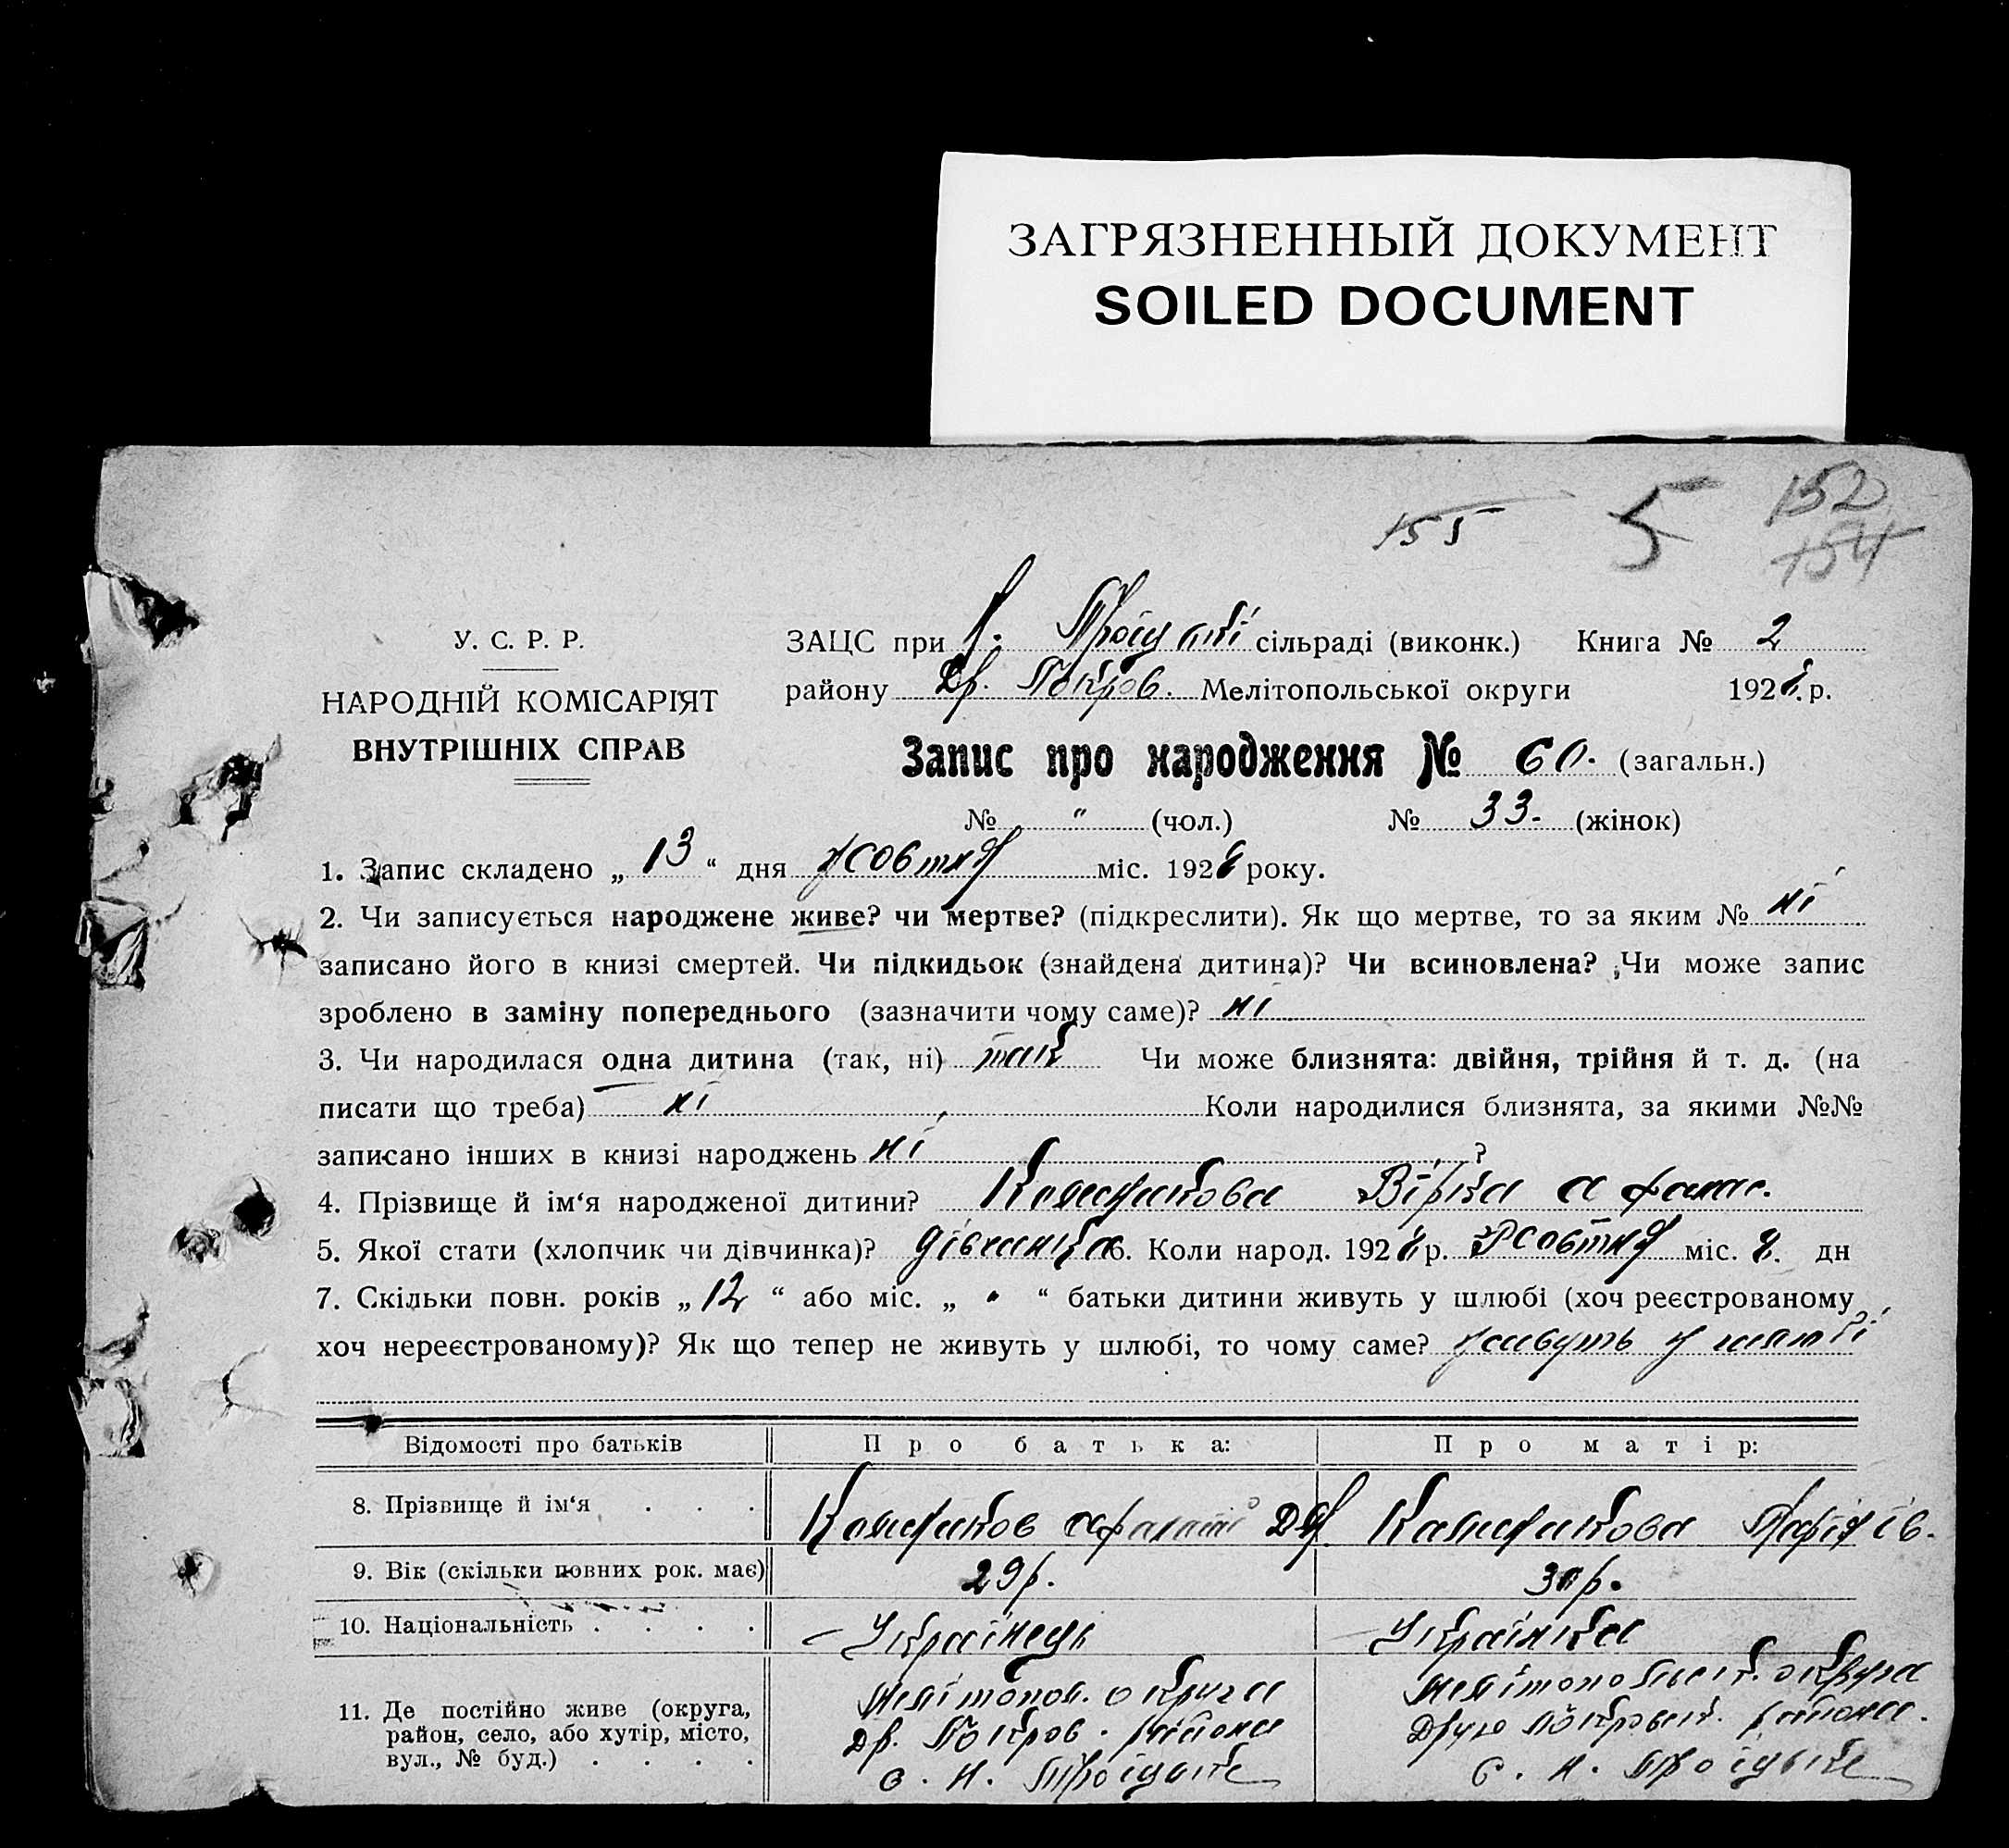 ЗАГРЯЗНЕННЫЙ ДОКУМЕНТ
SOILED DOCUMENT
155 5 152
154
У. С. Р. Р. ЗАЦС при сільраді (виконк.) Книга № 2
району Др. Покров. Мелітопольської округи 192 р.
НАРОДНІЙ КОМІСАРІЯТ
ВНУТРІШНІХ СПРАВ
Запис про народження № 60. (загальн.)
№ " (чол.) № 33. (жінок)
1. Запис складено „ 13 “ дня жовтня міс. 192 року.
2. Чи записується народжене живе? чи мертве? (підкреслити). Як що мертве, то за яким № ні
записано його в книзі смертей. Чи підкидьок (знайдена дитина)? Чи всиновлена? Чи може запис
зроблено в заміну попереднього (зазначити чому саме)? ні
3. Чи народилася одна дитина (так, ні) так Чи може близнята: двійня, трійня й т. д. (на
писати що треба) ні Коли народилися близнята, за якими №№
записано інших в книзі народжень ні ?
4. Прізвище й ім‘я народженої дитини? Вірка афанас.
5. Якої стати (хлопчик чи дівчинка)? дівчинка 6. Коли народ. 192 р. жовтня міс. 8. дн
7. Скільки повн. років „ 12 “ або міс. „ " “ батьки дитини живуть у шлюбі (хоч реєстрованому
хоч нереєстрованому)? Як що тепер не живуть у шлюбі, то чому саме? живуть у шлюбі
Відомості про батьків Про батька: Про матір:
8. Прізвище й ім‘я . . .
9. Вік (скільки повних рок. має) 29 р.
10. Національність . . . . Українець Українка
11. Де постійно живе (округа, Мелітопол. округи
район, село, або хутір, місто, Др. Покров. района
вул., № буд.) . . . . с. Н. Троїцьке с. Н. Троїцьке